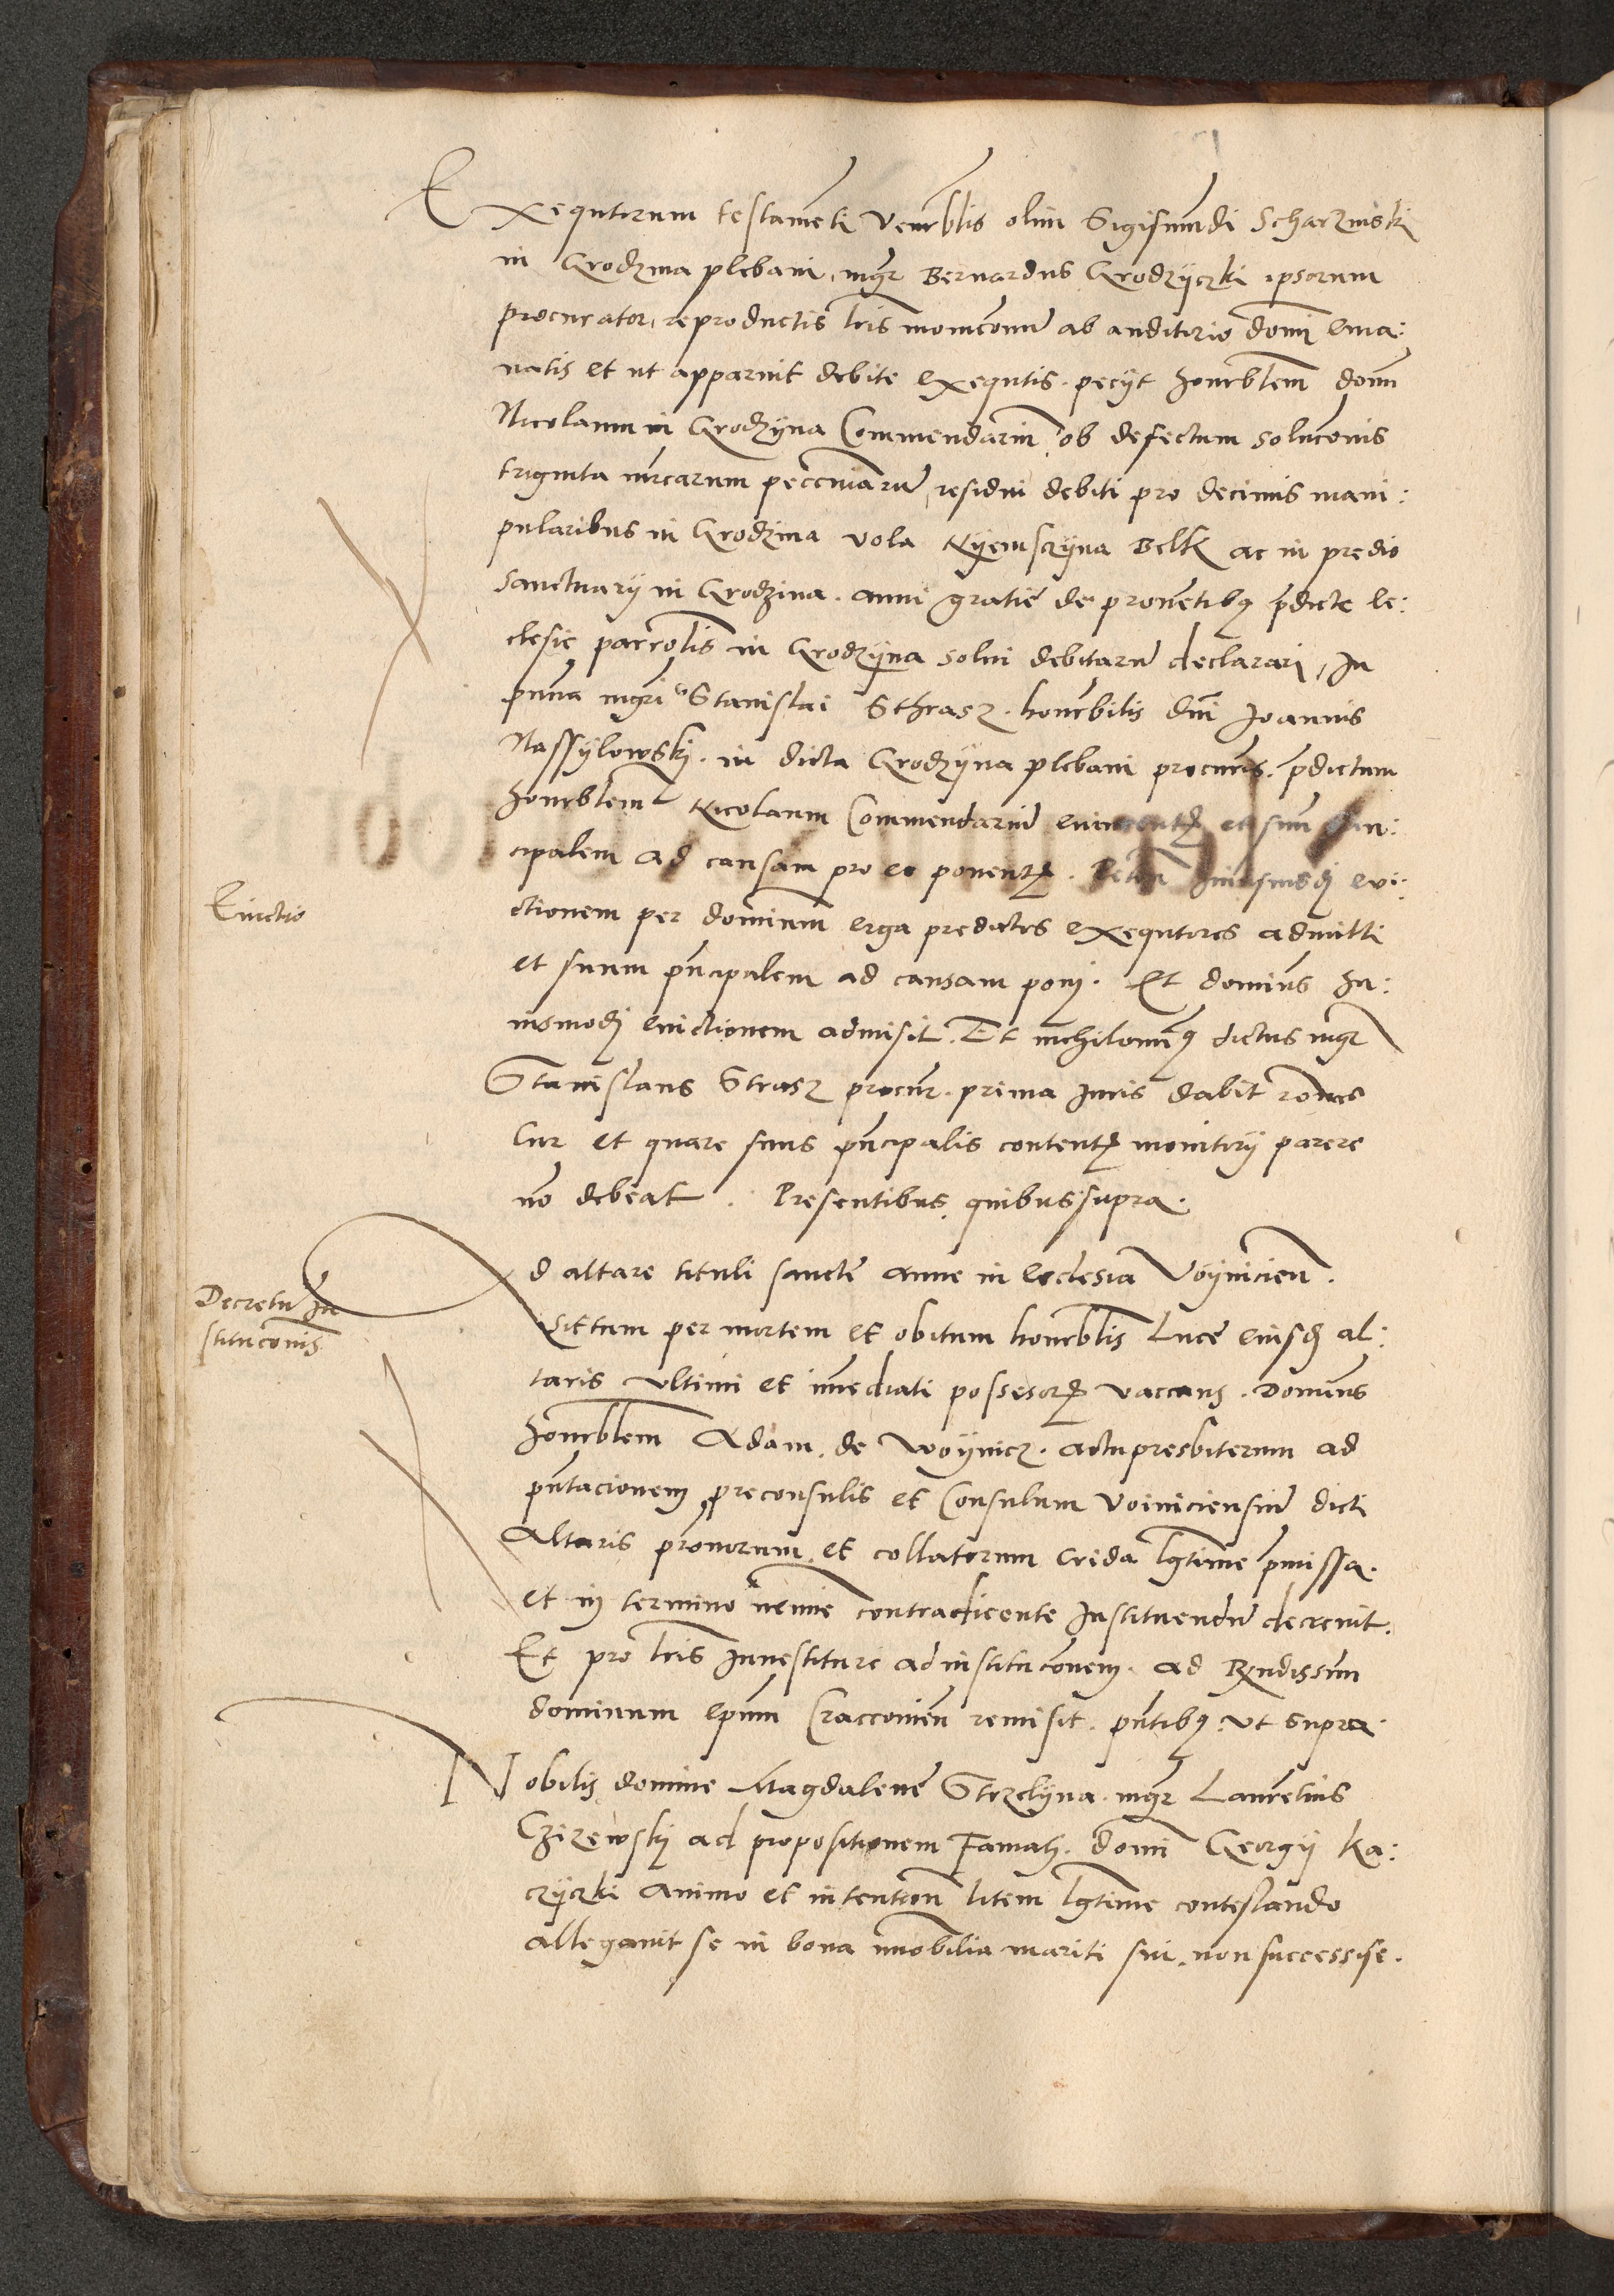 Exequtorum testameti venerblis olim Sigismundi Scharzinski
in Grodzina plebani, mgr Bernardus Grodzyczki ipsorum
procurator, reproductis lris monicionu ab auditorio domi ema:
natis et ut apparuit debite exequtis. pecyt honorblem domi
Nicolaum in Grodzyna Commendariu, ob defectum solucionis
triginta mrcarum pecuniaru, residui debiti pro decimis mani:
pularibus in Grodzina vola Nyemsczyna Belk ac in predio
sanctuary in Grodzina. anni gratie de provetibq pdicte ec:
clesie parrolis in Grodzyna solui debitaru declarari, In
pnna mgri Stanislai Sthrasz. honorbilis dni Joannis
Nassylowsky. in dicta Grodzyna plebani procuris. pdictum
honorblem Nicolaum Commendariu evincentis et suu prin:
cipalem ad causam pro eo ponentis. huiusmodi evi:
Evictio
ctionem per dominum erga predictos exequtores admitti
et suum pncipalem ad causam poni. Et dominus hu:
iusmodi evictionem admisit. Et nichilominq dictus mgr
Stanislaus Strasz procur. prima Juris dabit rones
Cur et quare suus pncipalis contentis monitory parere
no debeat. Presentibus quibus supra.
Ad altare tituli sancte anne in ecclesia Voynicien.
Decretu In
stitucionis
situm per mortem et obitum honorblis Luce eiusdem al:
taris ultimi et immediati possesoris vaccans. Dominus
honorblem Adam de Woynicz. actu presbiterum ad
pntacionem preconsulis et Consulum Voiniciensiu dicti
Altaris pronorum et collatorum crida lgtime pmissa.
et in termino nemine contradicente Instituendu decrevit.
Et pro lris Investiture ad institucionem. ad Rndissum
dominum epum Cracovien remisit. pntibq ut supra.
Nobilis domine Magdalene Strzelyna. mgr Lauretius
Czizewsky ad propositionem Famati. domi Georgy Ka:
czyczki animo et intention litem lgtime contestando
allegavit se in bona imobilia mariti sui non successise.